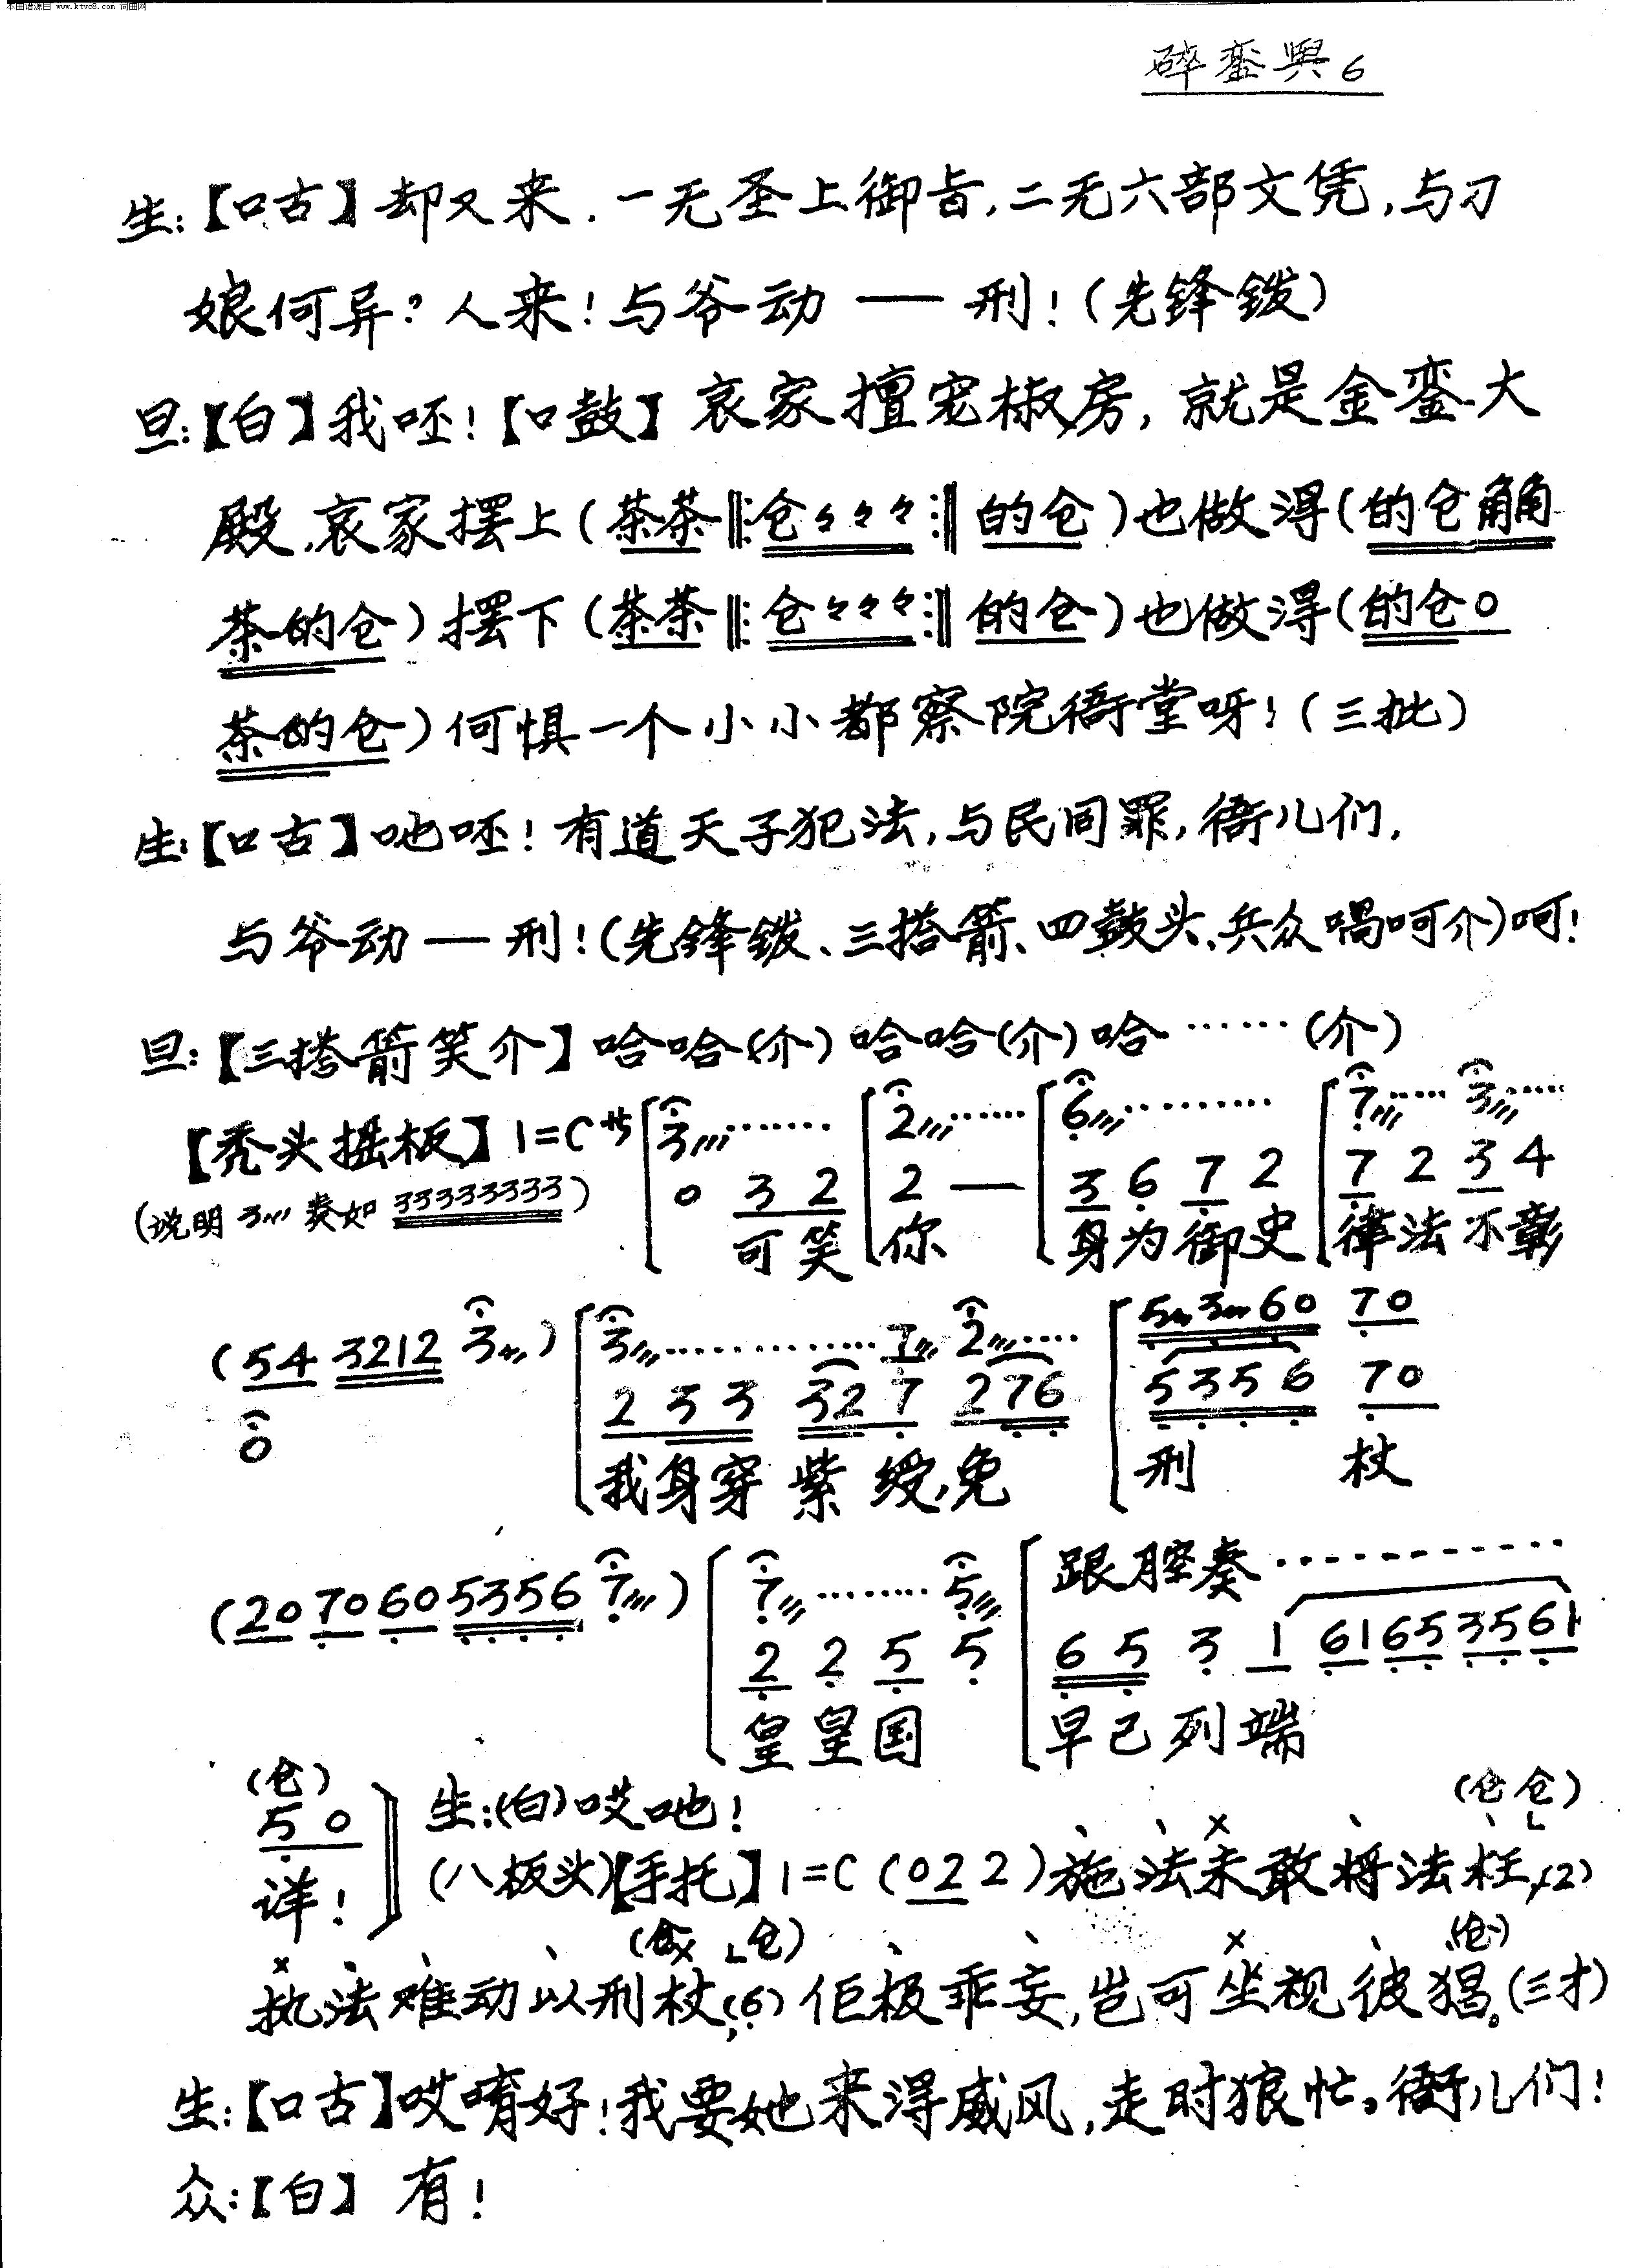 本曲谱源自 www.ktvc8.com 词曲网
碎銮舆6
生:【口古】却又来.一无圣上御旨,二无六部文凭,与刁
娘何异?人来!与爷动——刑!(先锋钹)
旦:【白】我呸!【口鼓】哀家擅宠椒房,就是金銮大
殿,哀家摆上(茶茶‖:仓々々々:‖的仓)也做得(的仓角角
茶的仓)摆下(茶茶‖:仓々々々:‖的仓)也做得(的仓0
茶的仓)何惧一个小小都察院衙堂呀!(三批)
生:【口古】吔呸!有道天子犯法,与民同罪,衙儿们,
与爷动——刑!(先锋钹、三搭箭、四鼓头、兵众喝呵介)呵!
旦:【三搭箭笑介】哈哈(介)哈哈(介)哈……(介)
【秃头搖板】1=C 3……… 2……… 6……… 7…… 3……
0 3 2 2 — 3 6 7 2 7 2 3 4
(说明 3 奏如 33333333)
可笑 你 身为御史 律法不彰
(54 3212 3) 3………7 2…… 5 3 60 70
0 2 3 3 32 7 276 5356 70
我身穿紫绶,免 刑 杖
(20 70 60 5356 7) 7………5 跟腔奏…………
2 2 5 5 6 5 3 1 61 65 35 61
皇皇国 早已列端
(仓)
5 0 生:(白)哎吔! (仓仓)
详! (八板头)【手托】1=C(022)施法未敢将法枉,(2)
(仓 仓) (仓)
执法难动以刑杖,(6)佢极乖妄,岂可坐视彼猖。(三才)
生:【口古】哎唷好!我要她来得威风,走时狼忙。衙儿们!
众:【白】有!